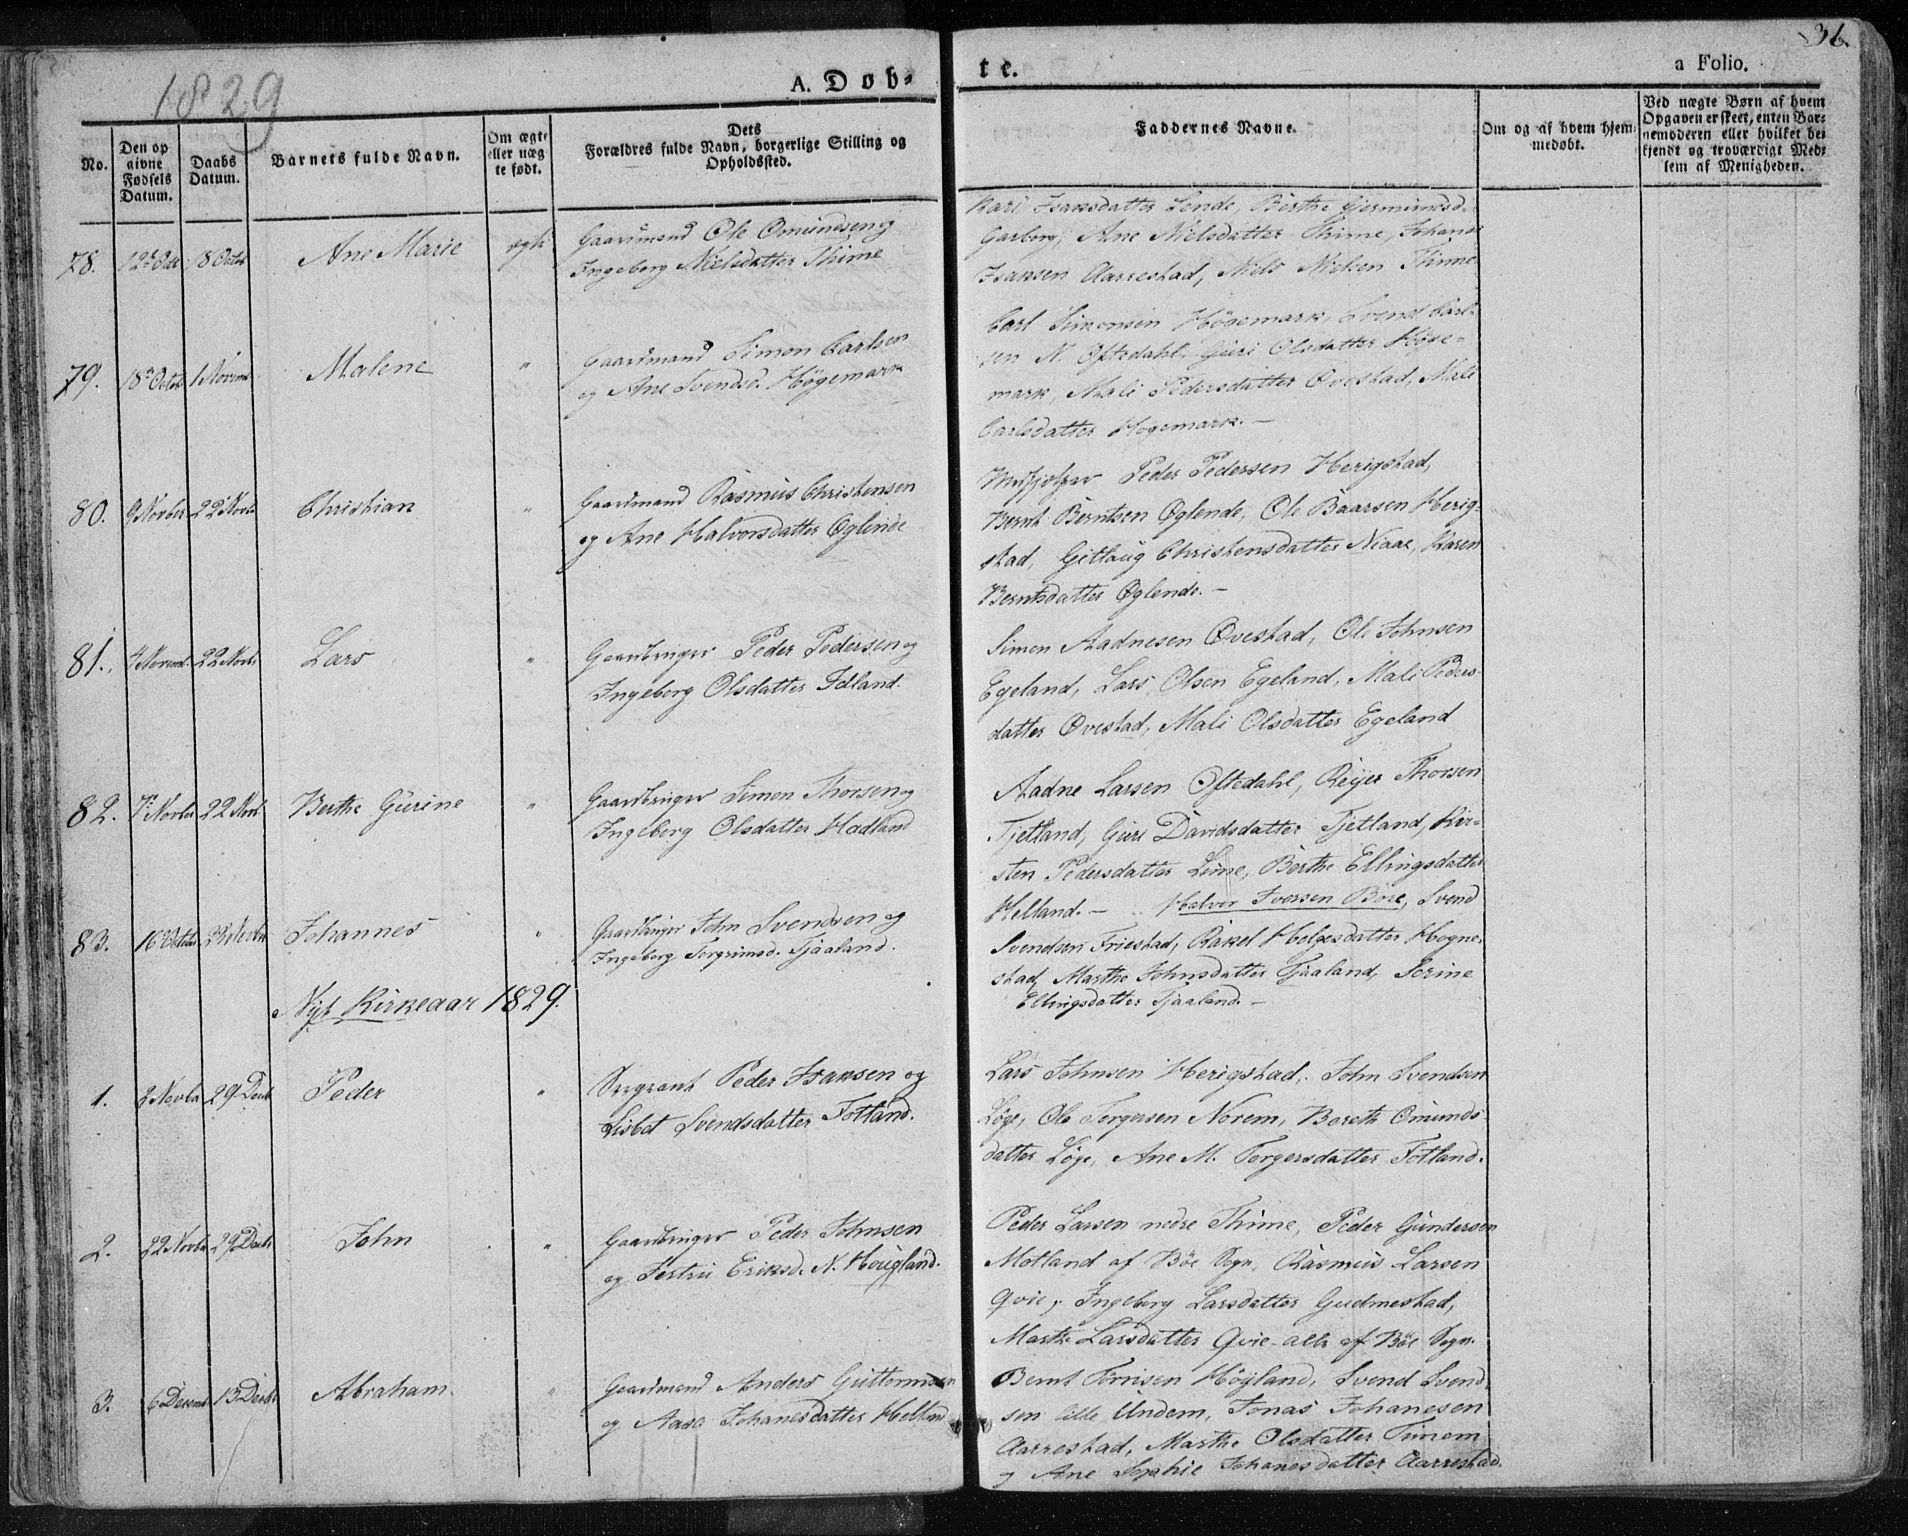 1829
A. Døb-
te.
36.
a Folio.
No.
Den op
givne
Fødsels
Datum.
Daabs
Datum.
Barnets fulde Navn.
Om ægte
eller uæg
te født.
Dets
Forældres fulde Navn, borgerlige Stilling og
Opholdssted.
Faddernes Navne.
Om og af hvem hjem-
medøbt.
Ved uægte Børn af hvem
Opgaven er skeet, enten Bar-
nemoderen eller hvilket be
kjendt og troværdigt Med-
lem af Menigheden.
78.
12te Octr
18 Octbr
Ane Marie
ægte
Gaardmand Ole Omundsen og
Ingeborg Nielsdatter Thime
Kari Isaksdatter Lende, Berthe Gjermundsd.
Garborg, Ane Nielsdatter Thime, Johanes
Isaksen Aarrestad, Niels Nielsen Thime
79.
18de Octob
1 Novemb
Malene
"
Gaardmand Simon Carlsen
og Ane Svendsd. Høgemark
Carl Simonsen Høgemark, Svend Carl-
sen N. Oftedahl, Guri Olsdatter Høge-
mark, Mali Pedersdatter Ovestad, Mali
Carlsdatter Høgemark. –
80.
9 Novber
22 Novbr
Christian
"
Gaardmand Rasmus Christensen
og Ane Halvorsdatter Øglende
Peder Pedersen Herigstad,
Bernt Berntsen Øglende, Ole Baarsen Herig-
stad, Gitlaug Christensdatter Niaae, Karen
Berntsdatter Øglende. –
81.
4 Novemb.
22 Novbr
Lars
"
Gaardbruger Peder Pedersen og
Ingeborg Olsdatter Idland.
Simon Aadnesen Ovestad, Ole Johnsen
Egeland, Lars Olsen Egeland, Mali Peders-
datter Ovestad, Mali Olsdatter Egeland
82.
7de Novbr
22 Novb.
Berthe Gurine
"
Gaardbruger Simon Thorsen og
Ingeborg Olsdatter Hadland
Aadne Larsen Oftedahl, Reijer Thorsen
Tjetland, Guri Davidsdatter Tjetland, Kir-
sten Pedersdatter Lime, Berthe Ellingsdatter
Helland. –
83.
16 Octbr
Novbr
Johannes
"
Gaardbruger John Svendsen og
Ingeborg Torgrimsd. Tjaaland.
Halvor Iversen Böre, Svend
Svendsen Friestad, Rakel Helgesdatter Hogne-
stad, Marthe Johnsdatter Tjaaland, Serine
Ellingsdatter Tjaaland. –
Nyt Kirkeaar 1829.
1.
2 Novbr
29 Decb
Peder
"
Sergeant Peder Isaksen og
Lisbet Svendsdatter Fotland.
Lars Johnsen Herigstad, John Svendsen
Löge, Ole Torgersen Norem, Bereth Omunds-
datter Löge, Ane M. Torgersdatter Fotland.
2.
22 Novbr
29 Decbr
John
"
Gaardbruger Peder Johnsen
og Jertru Eriksd. N. Hougland.
Peder Larsen nedre Thime, Peder Gundersen
Motland af Böe Sogn, Rasmus Larsen
Qvie, Ingeborg Larsdatter Gudmestad,
Marthe Larsdatter Qvie alle af Böe Sogn.
3.
6 Decemb
13 Decbr
Abraham.
"
Gaardmand Anders Guttormsen
og Aasa Johanesdatter Helland
Bernt Tönisen Höyland, Svend Svend-
sen lille Undem, Jonas Johanesen
Aarrestad, Marthe Olsdatter Timem
og Ane Sophie Johanesdatter Aarrestad.